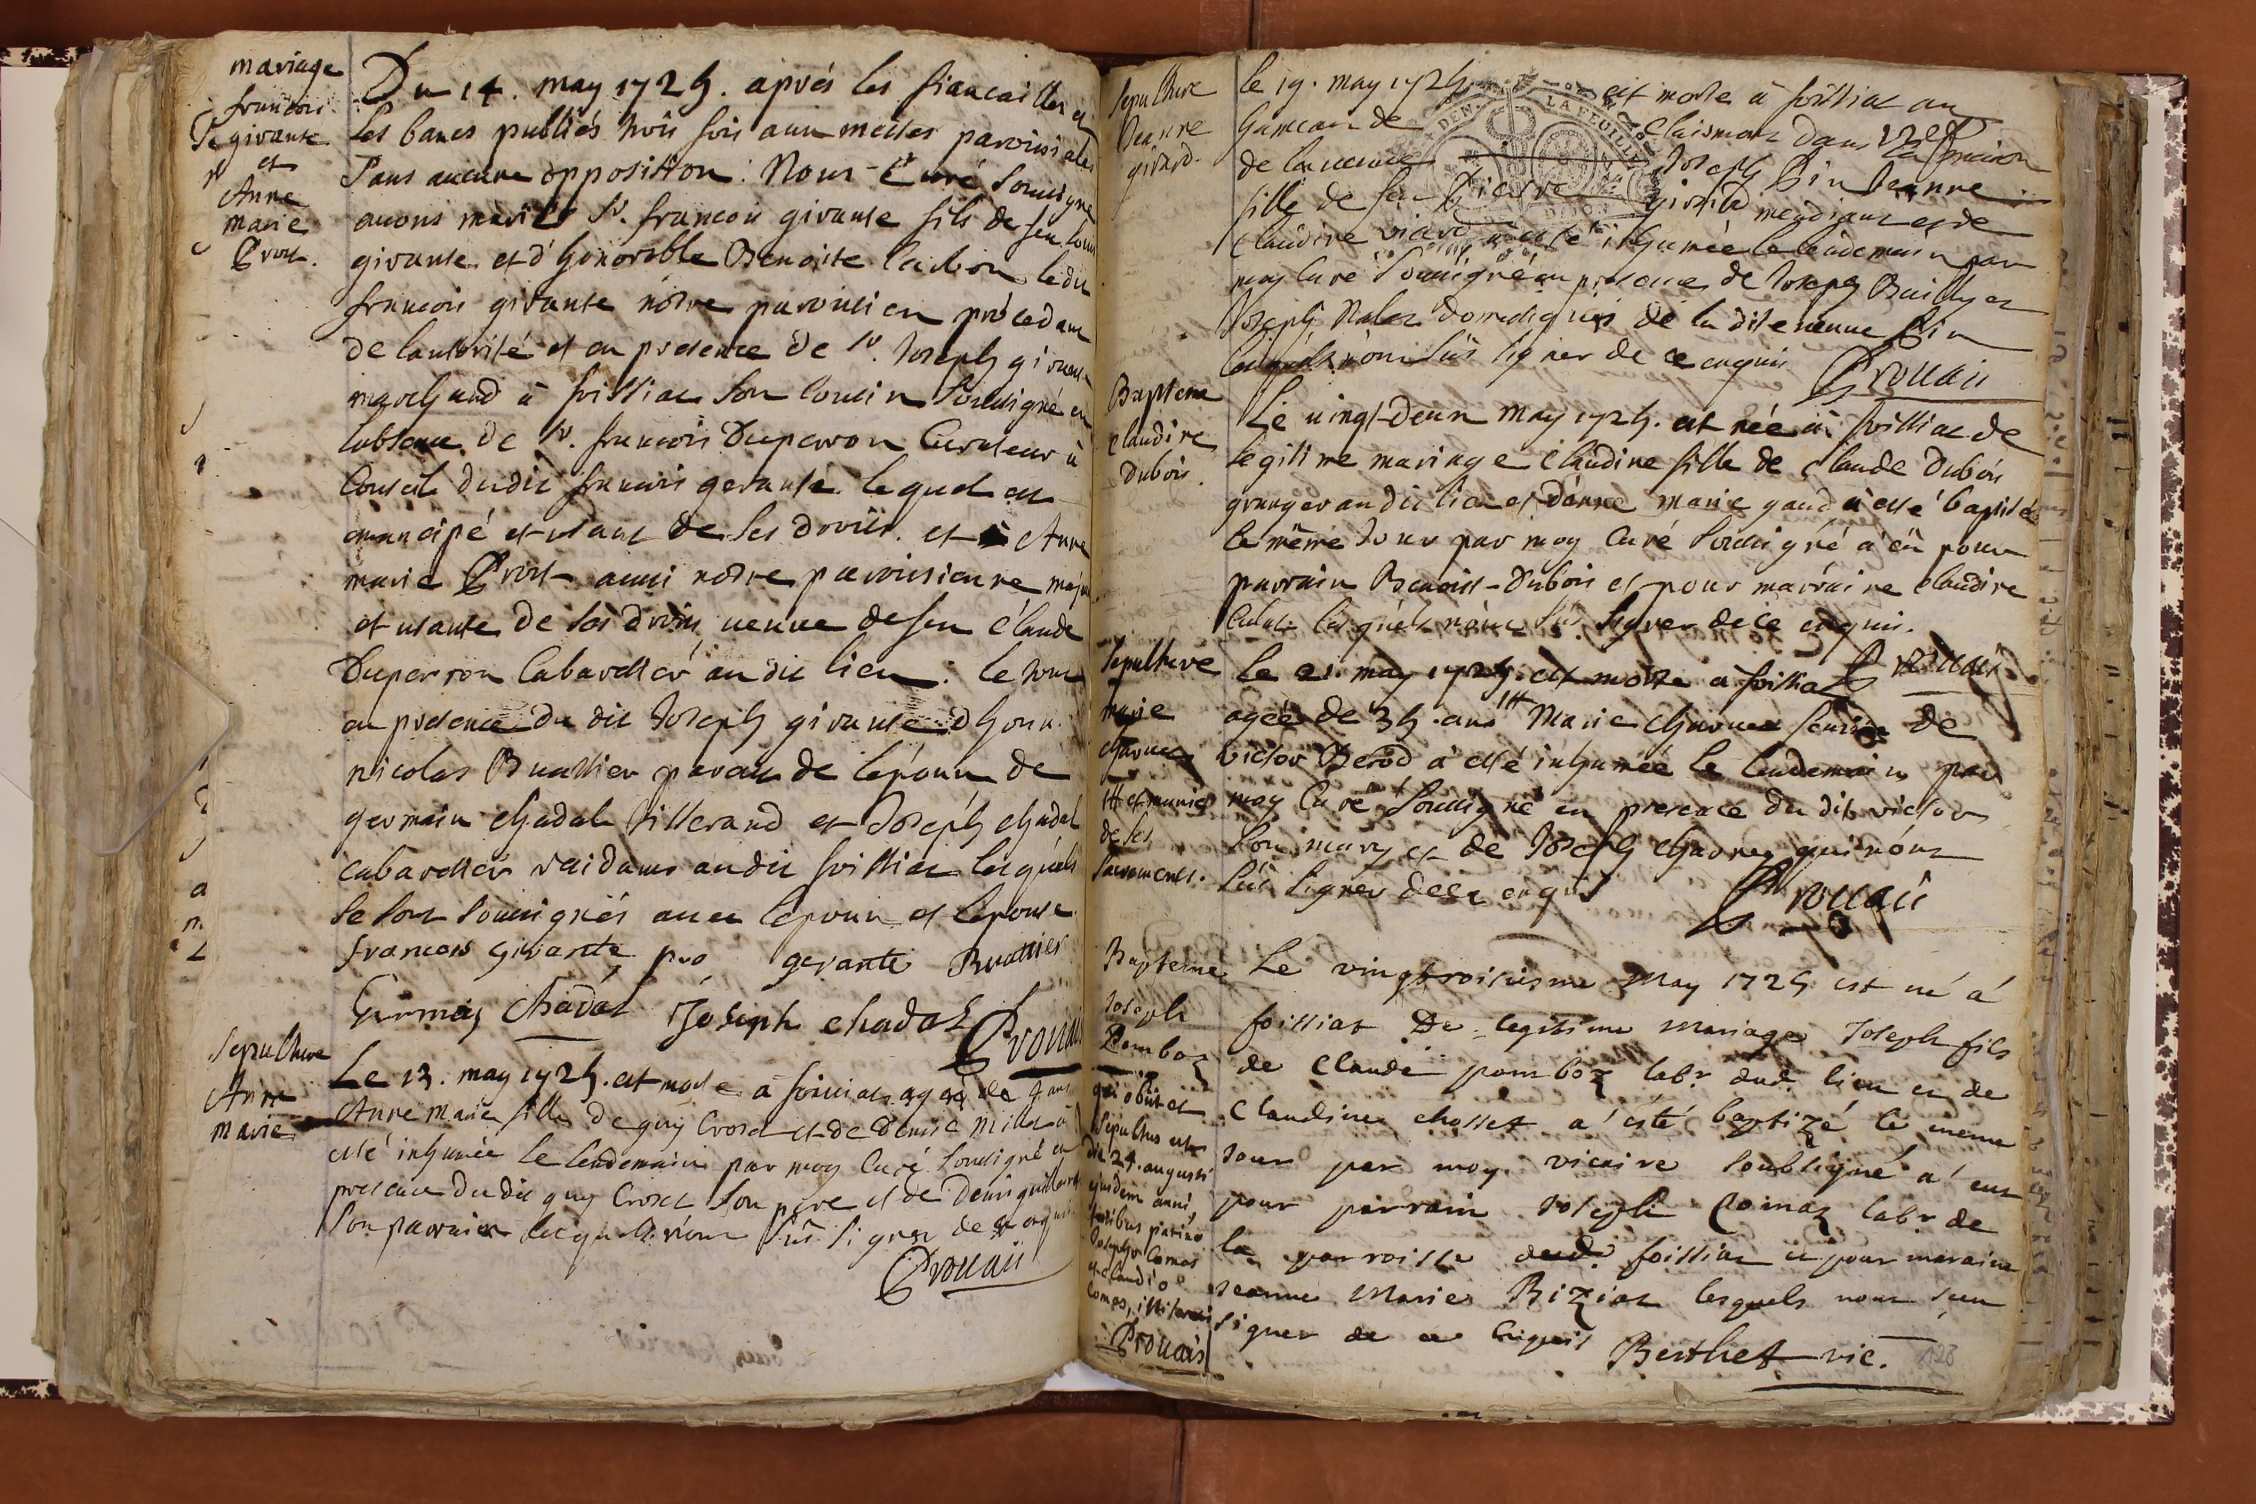 mariage
francois
girante
et
Anne
marie
Prost.
Du 14. may 1725. aprés les fiancailles et
les bancs publiés trois fois aux messes paroissiales
sans aucune opposition. Nous Curé soussigné
avons mariés Sr. francois girante fils de feu Louis
girante et d'honorable Benoite ledit
francois girante nôtre paroissien procedant
de lautorité et en presence de Sr. Joseph girante
marchand à foissiat son cousin soussigné en
labsence de Sr. francois Duperron Curateur à
Conseil dudit francois gerante lequel est
emancipé et usant de ses droits. et Anne
marie Prost aussi nostre paroissienne majeure
et usante de ses droits veuve de feu Claude
Duperron Cabaretier audit lieu. le tout
en presence du dit Joseph girante d'honn.
nicolas Buattier parent de lepoux de
germain chadal tisserand et Joseph chadal
cabaretier residants audit foissiat lesquels
se sont soussignés avec lepoux et lepouse
francois girante pro gerante Buattier
Germain Chadal Joseph chadal Prouais
Sepulture
Anne
marie
Le 13. may 1725. est morte à foissiat agée de 9 ans
Anne marie fille de guy Croset et de Denise millet à
esté inhumée le lendemain par moy Curé soussigné en
presence dudit guy Croset son pere et de Denis
son parrain lesquels n'ont sû signer de ce enquis
Prouais
Sepulture
Jeanne
girard.
le 19. may 1725. est morte à foissiat au
hameau de Clairmont dans
de la veuve Joseph Pin Jeanne
fille de feu Pierre girard mendiant et de
Claudine viard à esté inhumée le lendemain par
moy Curé soussigné en presence de Joseph Bailly et
Joseph Nalet domestiques de la dite veuve Pin
lesquels n'ont sûs signer de ce enquis
Prouais
Bapteme
claudine
Dubois.
Le vingt-deux may 1725. est née à foissiat de
legitime mariage Claudine fille de claude Dubois
granger audit lieu et d'anne marie gaud à esté baptisée
le même Jour par moy Curé soussigné à eü pour
parrain Benoist Dubois et pour marraine Claudine
lesquels n'ont sûs signer de ce enquis.
Prouais
Sepulture
marie
charnet
et munie
de ses
Sacrements.
le 21. may 1725. est morte à foissiat
agée de 35. ans Marie Charnet femme de
victor Berod à esté inhumée le lendemain par
moy Curé soussigné en presence du dit victor
son mary et de Joseph charnet qui n'ont
sûs signer de ce enquis
Prouais
Bapteme
Joseph
Pomboz
qui obiit et
sepultus est
die 24. augusti
ejusdem anni,
testibus patrino
Josepho Comas
et claudio
Comas, illiteratis
Prouais
Le vingtroisiesme May 1725 est né á
foissiat De legitime mariage Joseph fils
de Claude pomboz labr. dud. lieu et de
Claudine chosset a été baptizé le meme
Jour par moy vicaire soubsigné a eut
pour parrain Joseph Comaz labr de
la parroisse dud. foissiat et pour maraine
Jeanne Marie Biziat lesquels nont sceu
signer de ce Enquis
Berthet vic.
128